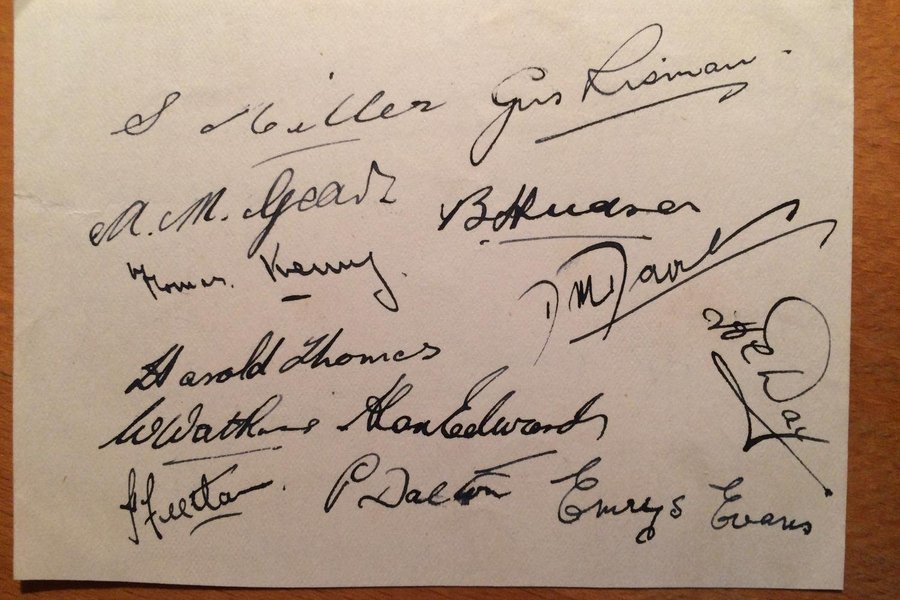 S Miller Gus Risman
M. M. Gear B. Hudson
Thomas Kenny. D M Davies
Harold Thomas
W Watkins Alan Edwards
P Dalton Emrys Evans
Day